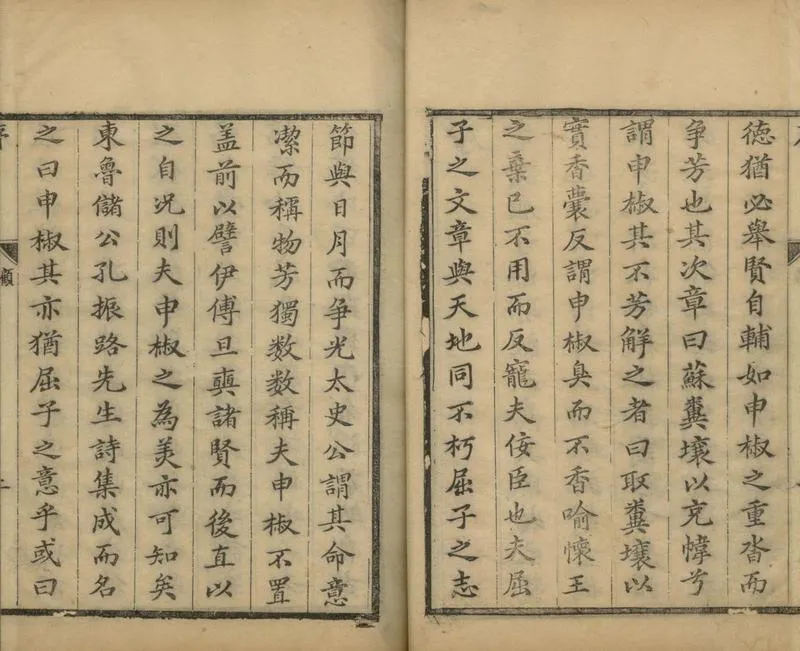 徳猶必舉賢自輔如申椒之重沓而
争芳也其次章曰蘇糞壤以充幃兮
謂申椒其不芳解之者曰取糞壤以
實香囊反謂申椒臭而不香喻懷王
之棄已不用而反寵夫佞臣也夫屈
子之文章與天地同不朽屈子之志
節與日月而争光太史公謂其命意
潔而稱物芳獨数数稱夫申椒不置
盖前以譬伊傅旦奭諸賢而後直以
之自况則夫申椒之為美亦可知矣
東魯儲公孔振路先生詩集成而名
之曰申椒其亦猶屈子之意乎或曰